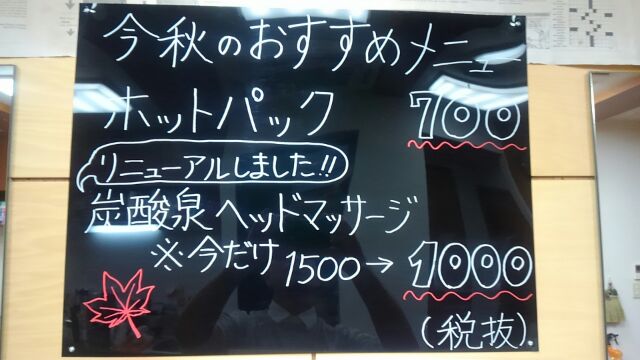 今秋のおすすめメニュー
ホットパック 700
リニューアルしました!!
炭酸泉ヘッドマッサージ
※今だけ 1500→1000
(税抜)